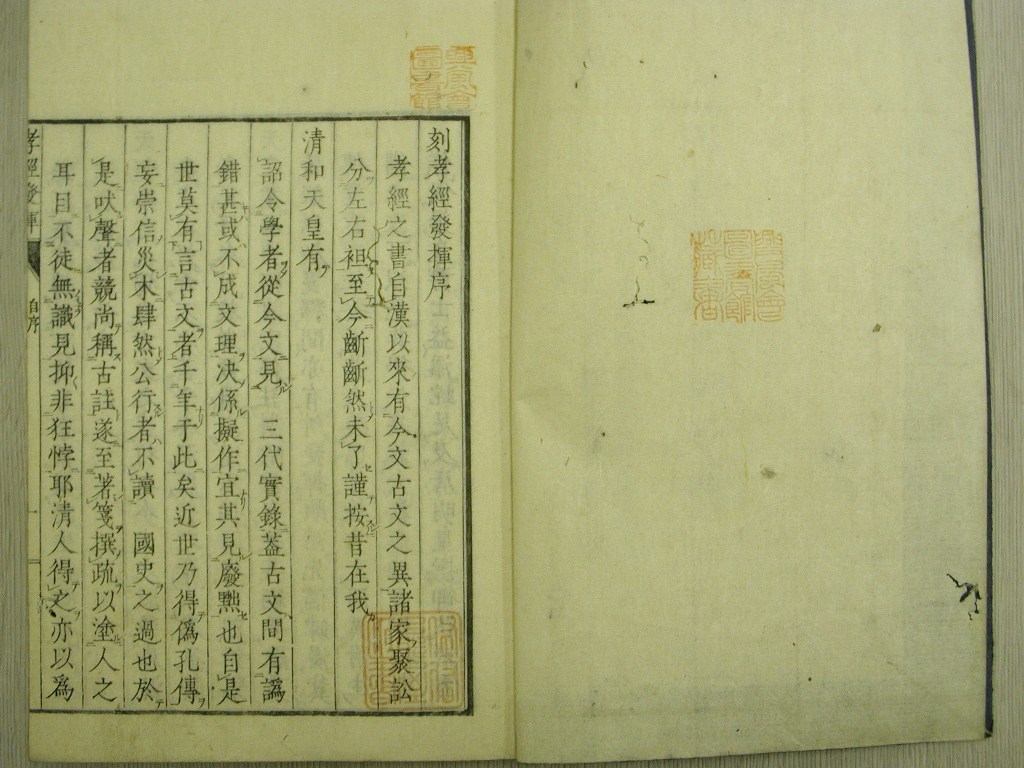 刻孝經發揮序
孝經之書自漢以來有今文古文之異諸家聚訟
分左右袒至今齗齗然未了謹按昔在我
清和天皇有
詔令學者從今文見三代實錄蓋古文間有譌
錯甚或不成文理决係擬作宜其見廢黜也自是
世莫有言古文者千年于此矣近世乃得僞孔傳
妄崇信災木肆然公行者不讀國史之過也於
是吠聲者競尚稱古註遂至著箋撰疏以塗人之
耳目不徒無識見抑非狂悖耶清人得之亦以爲
孝經發揮
自序
一